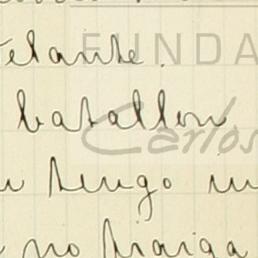 elante.
batallon
tengo
no traiga
FUNDA
Carlos